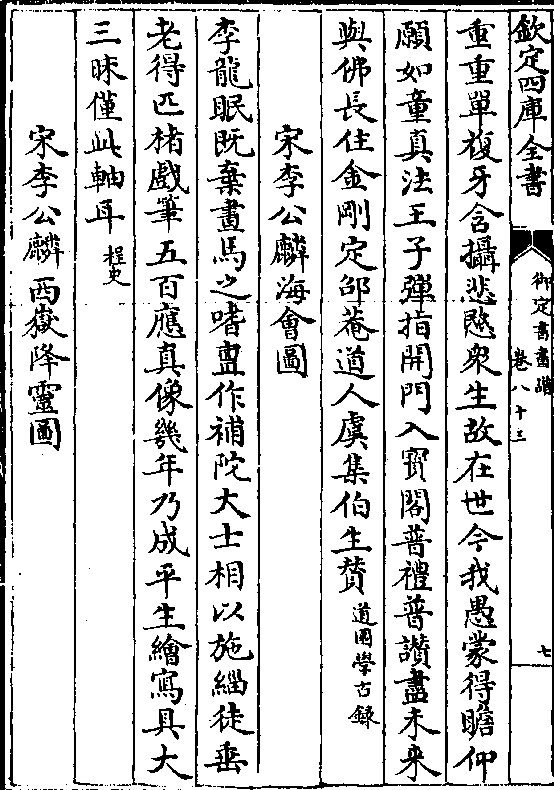 欽定四庫全書
御定書畫譜
卷八十三
七
重重單複牙含攝悲愍衆生故在世今我愚蒙得瞻仰
願如童真法王子彈指開門入寳閣普禮普讃盡未來
與佛長住金剛定邵菴道人虞集伯生賛道園學古録
宋李公麟海會圖
李龍眠既棄畫馬之嗜亶作補陀大士相以施緇徒垂
老得匹楮戲筆五百應真像幾年乃成平生繪寫具大
三昧僅此軸耳桯史
宋李公麟西嶽降靈圖